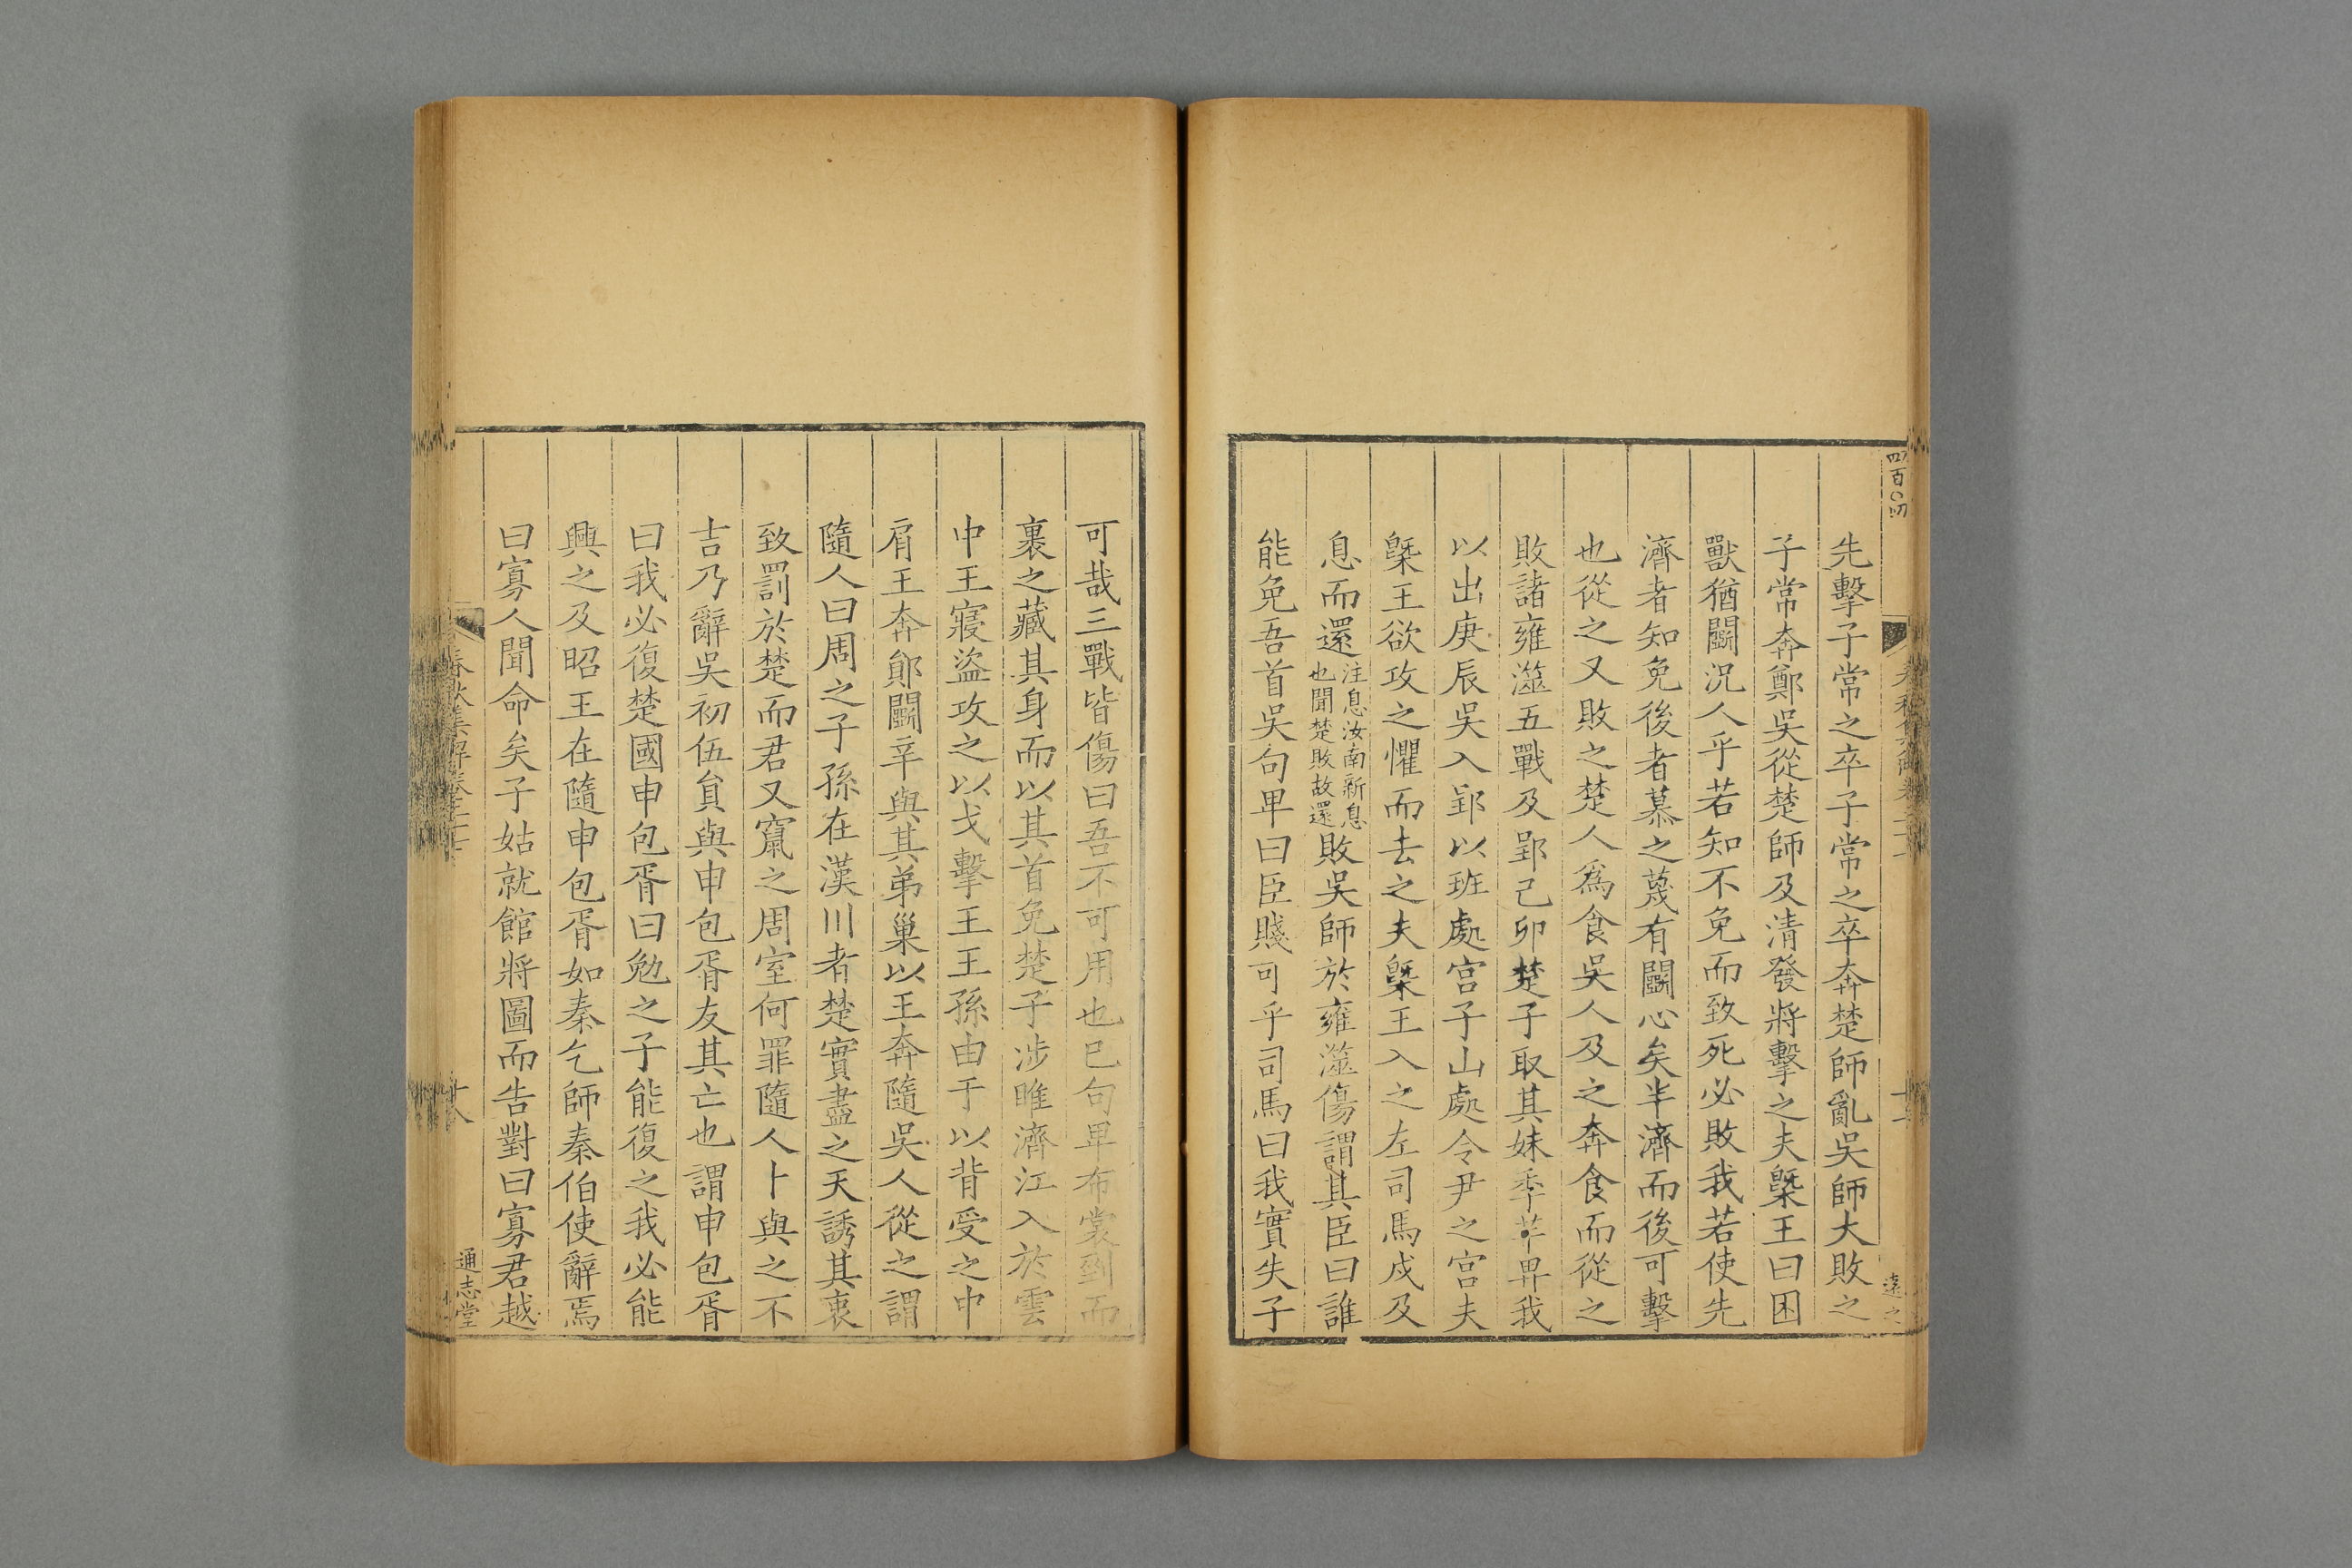 先擊子常之卒子常之卒奔楚師亂吳師大敗之
子常奔鄭吳從楚師及清發將擊之夫槩王曰困
獸猶鬭況人乎若知不免而致死必敗我若使先
濟者知免後者慕之蔑有鬭心矣半濟而後可擊
也從之又敗之楚人爲食吳人及之奔食而從之
敗諸雍澨五戰及郢己卯楚子取其妹季芊畀我
以出庚辰吳入郢以班處宫子山處令尹之宫夫
槩王欲攻之懼而去之夫槩王入之左司馬戍及
息而還
注息汝南新息
也聞楚敗故還
敗吳師於雍澨傷謂其臣曰誰
能免吾首吳句卑曰臣賤可乎司馬曰我實失子
可哉三戰皆傷曰吾不可用也巳句卑布裳剄而
裹之藏其身而以其首免楚子涉睢濟江入於雲
中王寢盜攻之以戈擊王王孫由于以背受之中
肩王奔鄖鬭辛與其弟巢以王奔隨吳人從之謂
隨人曰周之子孫在漢川者楚實盡之天誘其衷
致罰於楚而君又竄之周室何罪隨人卜與之不
吉乃辭吳初伍貟與申包胥友其亡也謂申包胥
曰我必復楚國申包胥曰勉之子能復之我必能
興之及昭王在隨申包胥如秦乞師秦伯使辭焉
曰寡人聞命矣子姑就館將圖而告對曰寡君越
春秋集解卷二十
十八
通志堂